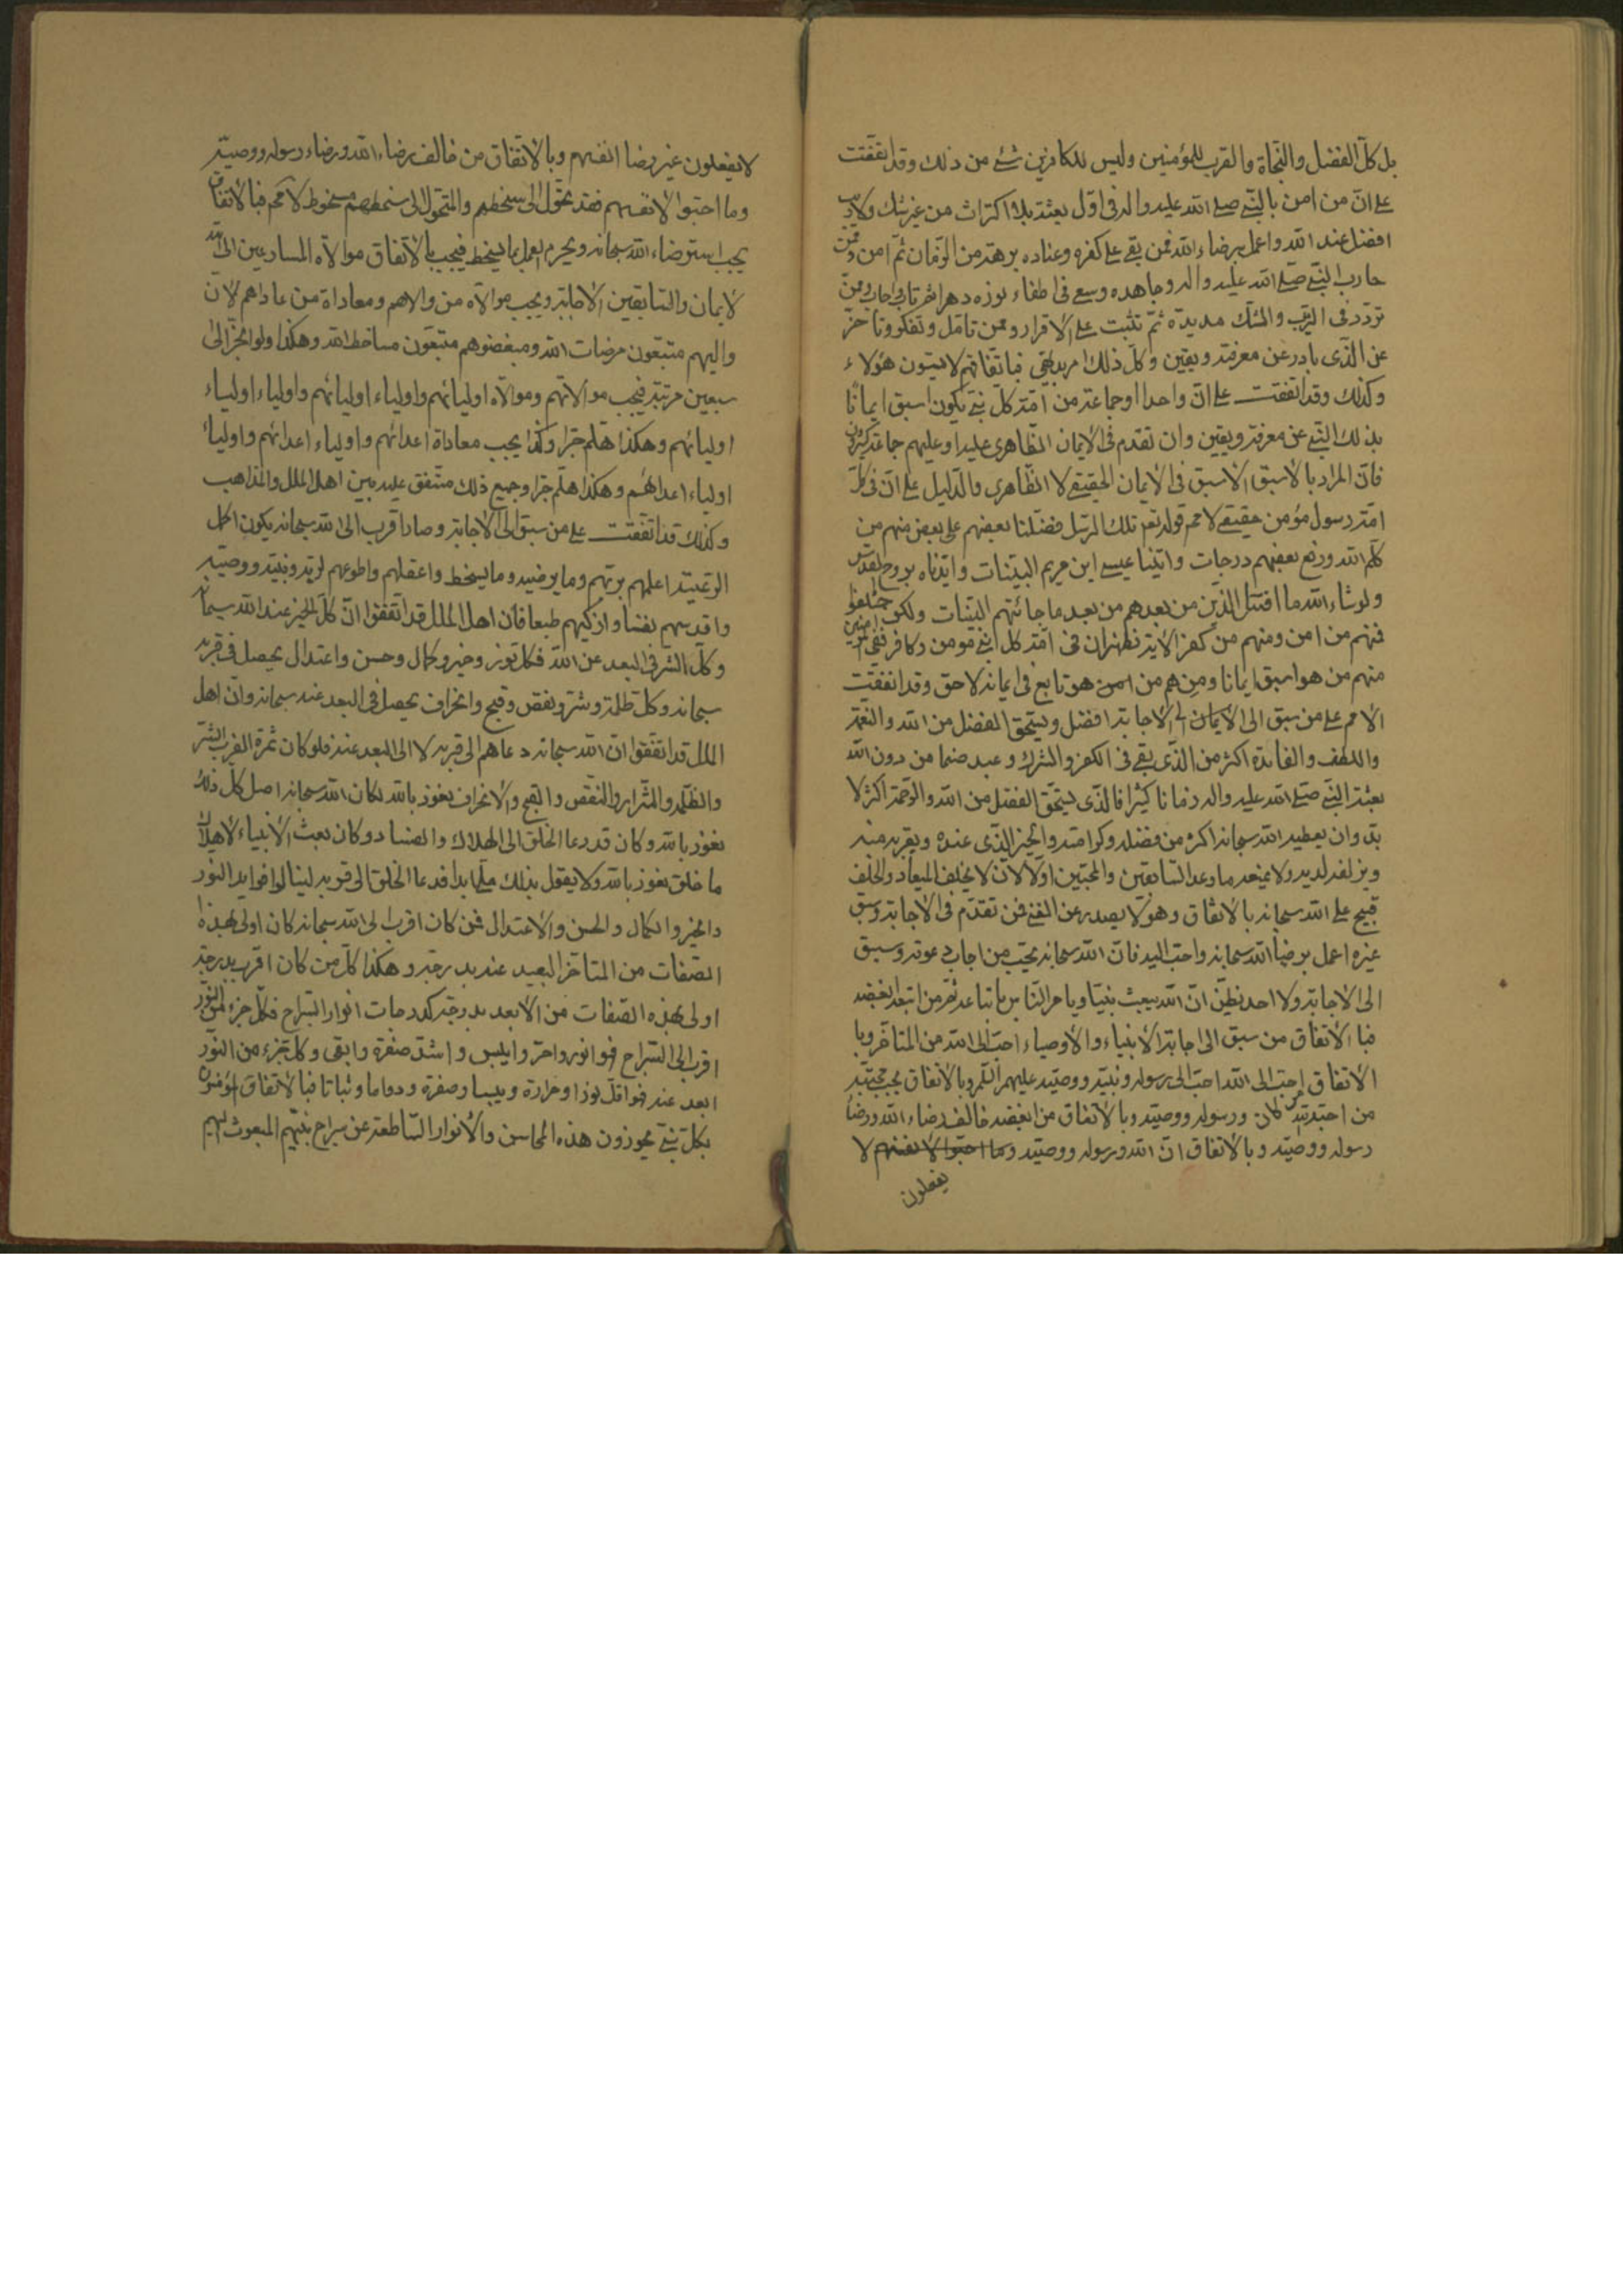 بل كلّ الفضل والنّجاة والقرب للمؤمنين وليس للكافرين شئ من ذلك وقد اتّفقت
على انّ من امن بالنّبى صلى الله عليه واله فى اوّل بعثته بلا اكتراث من غير شك ولا ريب
افضل عند الله واعمل برضاء الله فمن بقى على كفره وعناده برهة من الزّمان ثمّ امن وممّن
حارب النّبى صلّى الله عليه واله وجاهده وسعى فى اطفاء نوره دهرا ثمّ تاب واجاب وممّن
تردّد فى الرّيب والشّك مديدة ثمّ تثبت على الاقرار وممن تامّل وتفكر وتاخّر
عن الّذى بادر عن معرفة ويقين وكلّ ذلك بديهى فباتّفاقهم لا يستوون هؤلاء
وكذلك وقد اتّفقت على انّ واحدا او جماعة من امّة كلّ نبى يكون اسبق ايمانًا
بذلك النّبى عن معرفة ويقين وان تقدم فى الايمان الظّاهرى عليه او عليهم جماعة كثيرون
فانّ المراد بالاسبق الاسبق فى الايمان الحقيقى لا الظّاهرى والدّليل على انّ فى كلّ
امّة رسول مؤمن حقيقى لامحة قوله تعالى تلك الرّسل فضّلنا بعضهم على بعض منهم من
كلّم الله ورفع بعضهم درجات واتينا عيسى ابن مريم البيّنات وايّدناه بروح القدس
ولو شاء الله ما اقتتل الّذين من بعدهم من بعد ما جائتهم البيّنات ولكن اختلفوا
فمنهم من امن ومنهم من كفر الاية فظهر ان فى امّة كل نبى مؤمن وكافر ففى المؤمنين
منهم من هو اسبق ايمانا ومنهم من هو تابع فى ايمانه لاحق وقد اتفقت
الامم على من سبق الى الايمان الى الاجابة افضل ويستحق الفضل من الله والنّعمة
واللطف والفائدة اكثر من الّذى بقى فى الكفر والشرك وعبد صنما من دون الله
بعثة النّبى صلى الله عليه واله زمانا كثيرا فالّذى يستحقّ الفضل من الله والرّحمة اكثر لا
بدّ وان يعطيه الله سبحانه اكثر من فضله وكرامته والخير الّذى عنده ويقربه منه
ويزلفه لديه ولا يمنعه ما وعد السّابقين والمحبّين اوّلا لانّ لا يخلف الميعاد والخلف
قبيح على الله سبحانه بالاتّفاق وهو لا يصدر عن الغنى فمن تقدّم فى الاجابة وسبق
غيره اعمل برضاء الله سبحانه واحبّ اليه فانّ الله سبحانه يحبّ من اجاب دعوته وسبق
الى الاجابة ولا احد يظنّ انّ الله يبعث نبيّا ويامر النّاس باتباعه ثمّ من اتبعه ابغضه
فبالاتفاق من سبق الى اجابة الانبياء والاوصياء احبّ الى الله من المتاخّر وبا
الاتفاق احبّ الى الله احبّ الى رسوله ونبيّه ووصيّه عليهم السّلام وبالاتفاق يجب محبّة
من احبّه الله ورسوله ووصيّه وبالاتّفاق من ابغضه خالف رضاء الله ورضاء
رسوله ووصيّه وبالاتفاق انّ الله ورسوله ووصيّه وما احبّوا لانفسهم لا
يفعلون
لا يفعلون غير رضا انفسهم وبالاتّفاق من خالف رضاء الله ورضاء رسوله ووصيّه
وما احبّوا لانفسهم فقد تحوّل الى سخطهم والمتحوّل الى سخطهم مسخوط لامحة فبالاتفاق
يجب استرضاء الله سبحانه ويحرم العمل بما يسخط فيجب بالاتّفاق موالاة المسارعين الى الله
لايمان والسّابقين الاجابة ويجب موالاة من والاهم ومعاداة من عاداهم لانّ
واليهم متبعون مرضات الله ومبغضوهم متبعون مساخط الله وهكذا ولو انجرّ الى
سبعين مرتبة فيجب موالاتهم وموالاة اوليائهم واولياء اوليائهم واولياء اولياء
اوليائهم وهكذا هلمّ جرّا وكذا يجب معاداة اعدائهم واولياء اعدائهم واولياء
اولياء اعدائهم وهكذا هلمّ جرّا وجميع ذلك متّفق عليه بين اهل الملل والمذاهب
وكذلك قد اتّفقت على من سبق الى الاجابة وصار اقرب الى الله سبحانه يكون اكمل
الرّعيّة اعلمهم بربّهم وما يرضيه وما يسخط واعقلهم واطوعهم لربّه ونبيّه ووصيّه
واقدسهم نفسا وازكيهم طبعا فانّ اهل الملل قد اتّفقوا انّ كلّ الخير عند الله سبحانه
وكلّ الشرّ فى البعد عن الله فكلّ نور وخير وكمال وحسن واعتدال يحصل فى قربه
سبحانه وكل ظلمة وشرّ ونقص وقبح وانحراف يحصل فى البعد عنه سبحانه وانّ اهل
الملل قد اتّفقوا انّ الله سبحانه دعاهم الى قربه لا الى البعد عنه فلو كان ثمرة القرب الشرّ
والظّلمة والشّرارة والنّقص والقبح والانحراف نعوذ بالله لكان الله سبحانه اصل كلّ ذلك
نعوذ بالله وكان قد دعا الخلق الى الهلاك والفساد وكان بعث الانبياء لاهلاك
ما خلق نعوذ بالله ولا يقول بذلك ملّى ابدا فدعا الخلق الى قربه لينالوا فوايد النّور
والخير والكمال والحسن والاعتدال فمن كان اقرب الى الله سبحانه كان اولى بهذه
الصّفات من المتاخّر البعيد عنه بدرجة وهكذا كلّ من كان اقرب بدرجة
اولى بهذه الصّفات من الابعد بدرجة كدرجات انوار السّراج فكلّ جزء من النّور
اقرب الى السّراج فهو انور واحرّ وايبس واشدّ صفرة وابقى وكلّ جزء من النّور
ابعد عنه فهو اقلّ نورا وحرارة ويبسا وصفرة ودواما وثباتا فبالاتفاق المؤمنون
بكلّ نبىّ يحوزون هذه المحاسن والانوار السّاطعة عن سراج نبيّهم المبعوث اليهم